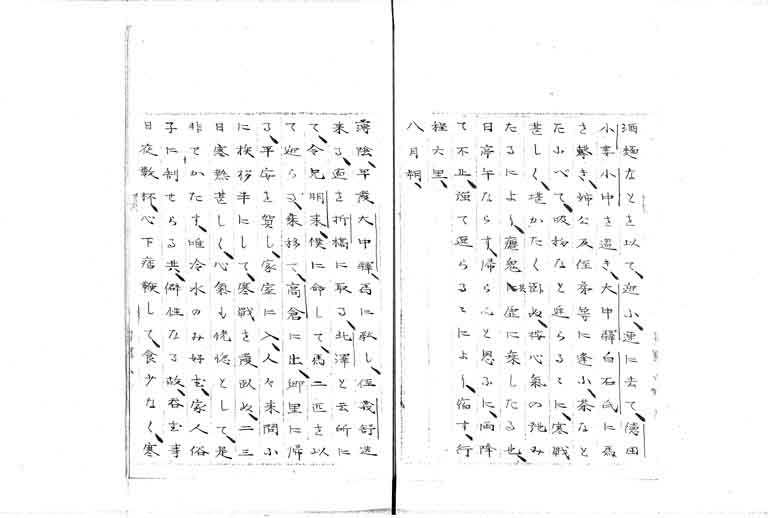 酒麺なとを以て、迎小、運に去て、徳田
小事小中を過き、大中驛白石氏に馬
を繋き、姉公及侄弟等に逢小、茶なと
たふへて、吸物なと進らるゝに、寒戦
甚しく、堪かたく臥ぬ、按心氣の弛み
たるによ〜、瘧鬼に虚に乗したる也、
日亭午ならす、帰らんと思ふに、雨降
て不止、強て還らるゝによ〜、宿す、行
程六里、
八月朔、
薄陰、平霞、大中驛馬に秣し、侄義舒送
来る、道を折橋に取る、北澤と云所に
て、令兄明来、僕に命して、馬二匹を以
て迎らる、乗移て、高倉に出、郷里に帰
る、平安を賀し、家室に入、人々来問小
に挨拶半にして、寒戦を覆臥ぬ、二三
日寒熱甚しく、心氣も恍惚として、是
非てかたす、唯冷水のみ好む、家人俗
子に制せらる共、僻性なる故、呑む事
日夜数杯、心下痞鞕して、食少なく、寒